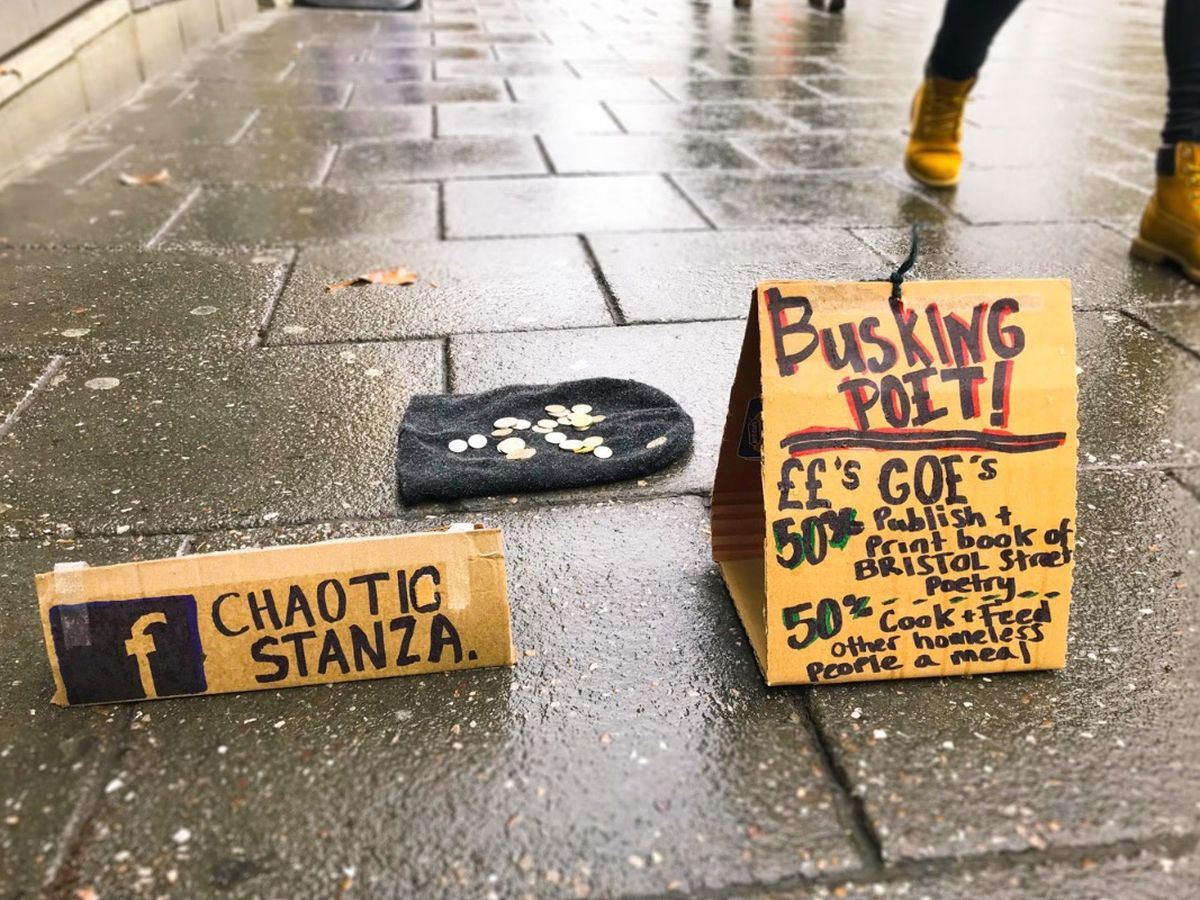 BUSKING
POET!
££'s GOE's
50% Publish +
Print book of
BRISTOL Street
Poetry
50% Cook + Feed
other homeless
people a meal
f CHAOTIC
STANZA.